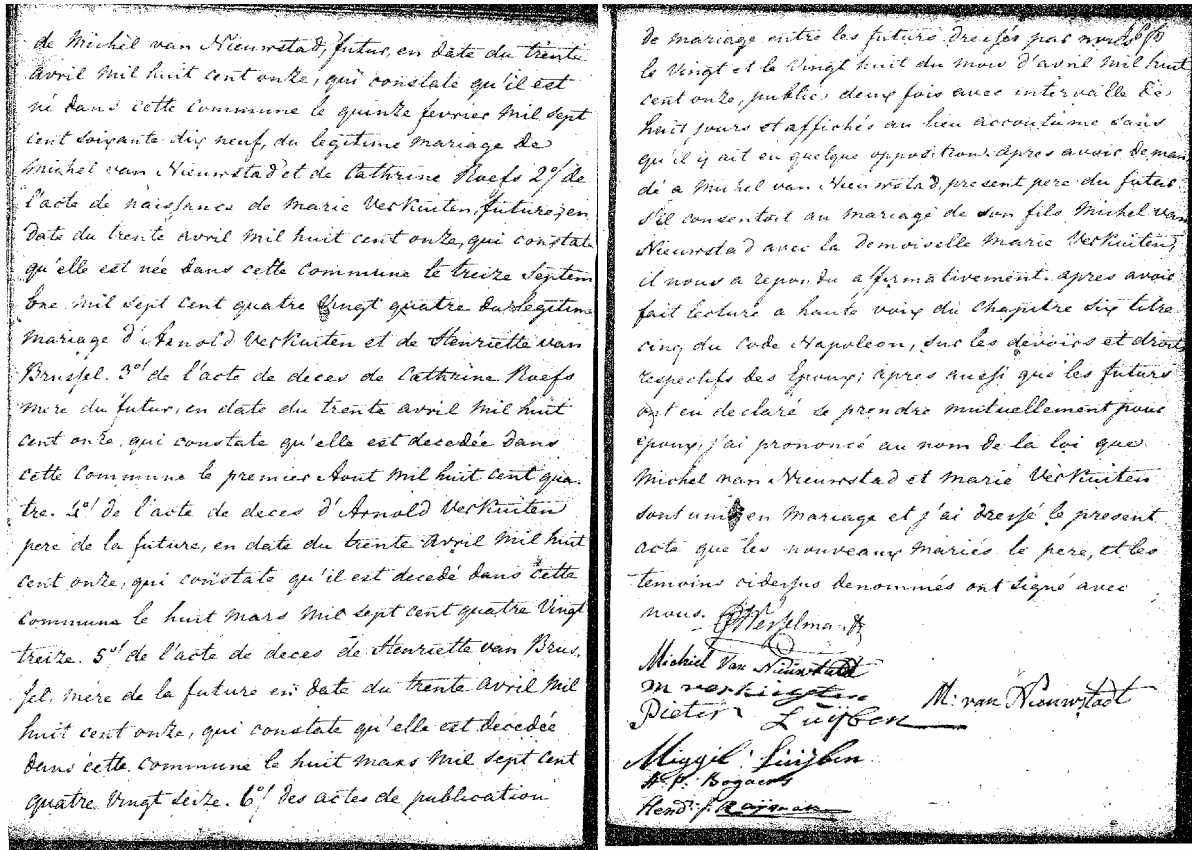 de Michel van Nieuwstad, futur, en date du trente
avril mil huit cent onze, qui constate qu'il est
né dans cette commune le quinze fevrier mil sept
cent soixante dix neuf, du legitime mariage de
Michel van Nieuwstad et de Cathrine Roefs 2º/ de
l'acte de naissance de Marie Verkuiten, future, en
date du trente avril mil huit cent onze, qui constate
qu'elle est née dans cette commune le treize Septem
bre mil sept cent quatre Vingt quatre du legitim
mariage d'Arnold Verkuiten et de Henriette van
Brussel. 3º/ de l'acte de deces de Cathrine Roefs
mere du futur, en date du trente avril mil huit
cent onze, qui constate qu'elle est decedée dans
cette commune le premier Aout mil huit cent qua
tre. 4º/ de l'acte de deces d'Arnold Verkuiten
pere de la future, en date du trente Avril mil huit
cent onze, qui constate qu'il est decedé dans cette
commune le huit mars mil sept cent quatre Vingt
treize. 5º/ de l'acte de deces de Henriette van Brus
sel, mere de la future en date du trente avril mil
huit cent onze, qui constate qu'elle est decedée
dans cette commune le huit mars mil sept cent
quatre Vingt seize. 6º/ des actes de publication
de mariage entre les futurs dressés par nous
le Vingt et le Vingt huit du mois d'avril mil huit
cent onze, publié deux fois avec intervalle de
huit jours et affichés au lieu accoutumé sans
qu'il y ait eu quelque opposition. apres avoir deman
dé a Michel van Nieuwstad, present pere du futur
s'il consentoit au mariage de son fils Michel van
Nieuwstad avec la demoiselle Marie Verkuiten,
il nous a repondu affirmativement. apres avoir
fait lecture a haute voix du chapitre six titre
cinq du Code Napoleon, sur les devoirs et droits
respectifs des Epoux; apres aussi que les futurs
ont eu declaré se prendre mutuellement pour
epoux, j'ai prononcé au nom de la loi que
Michel van Nieuwstad et Marie Verkuiten
sont unis en mariage et j'ai dressé le present
acte que les nouveaux mariés le pere, et les
temoins cidessus denommés ont signé avec
nous. Wesselman
Michiel Van Nieuwstadt
m verkuijten M. van Nieuwstadt
Pieter Luijben
Miggil Luijben
A. P. Bogaers
Hend: J.